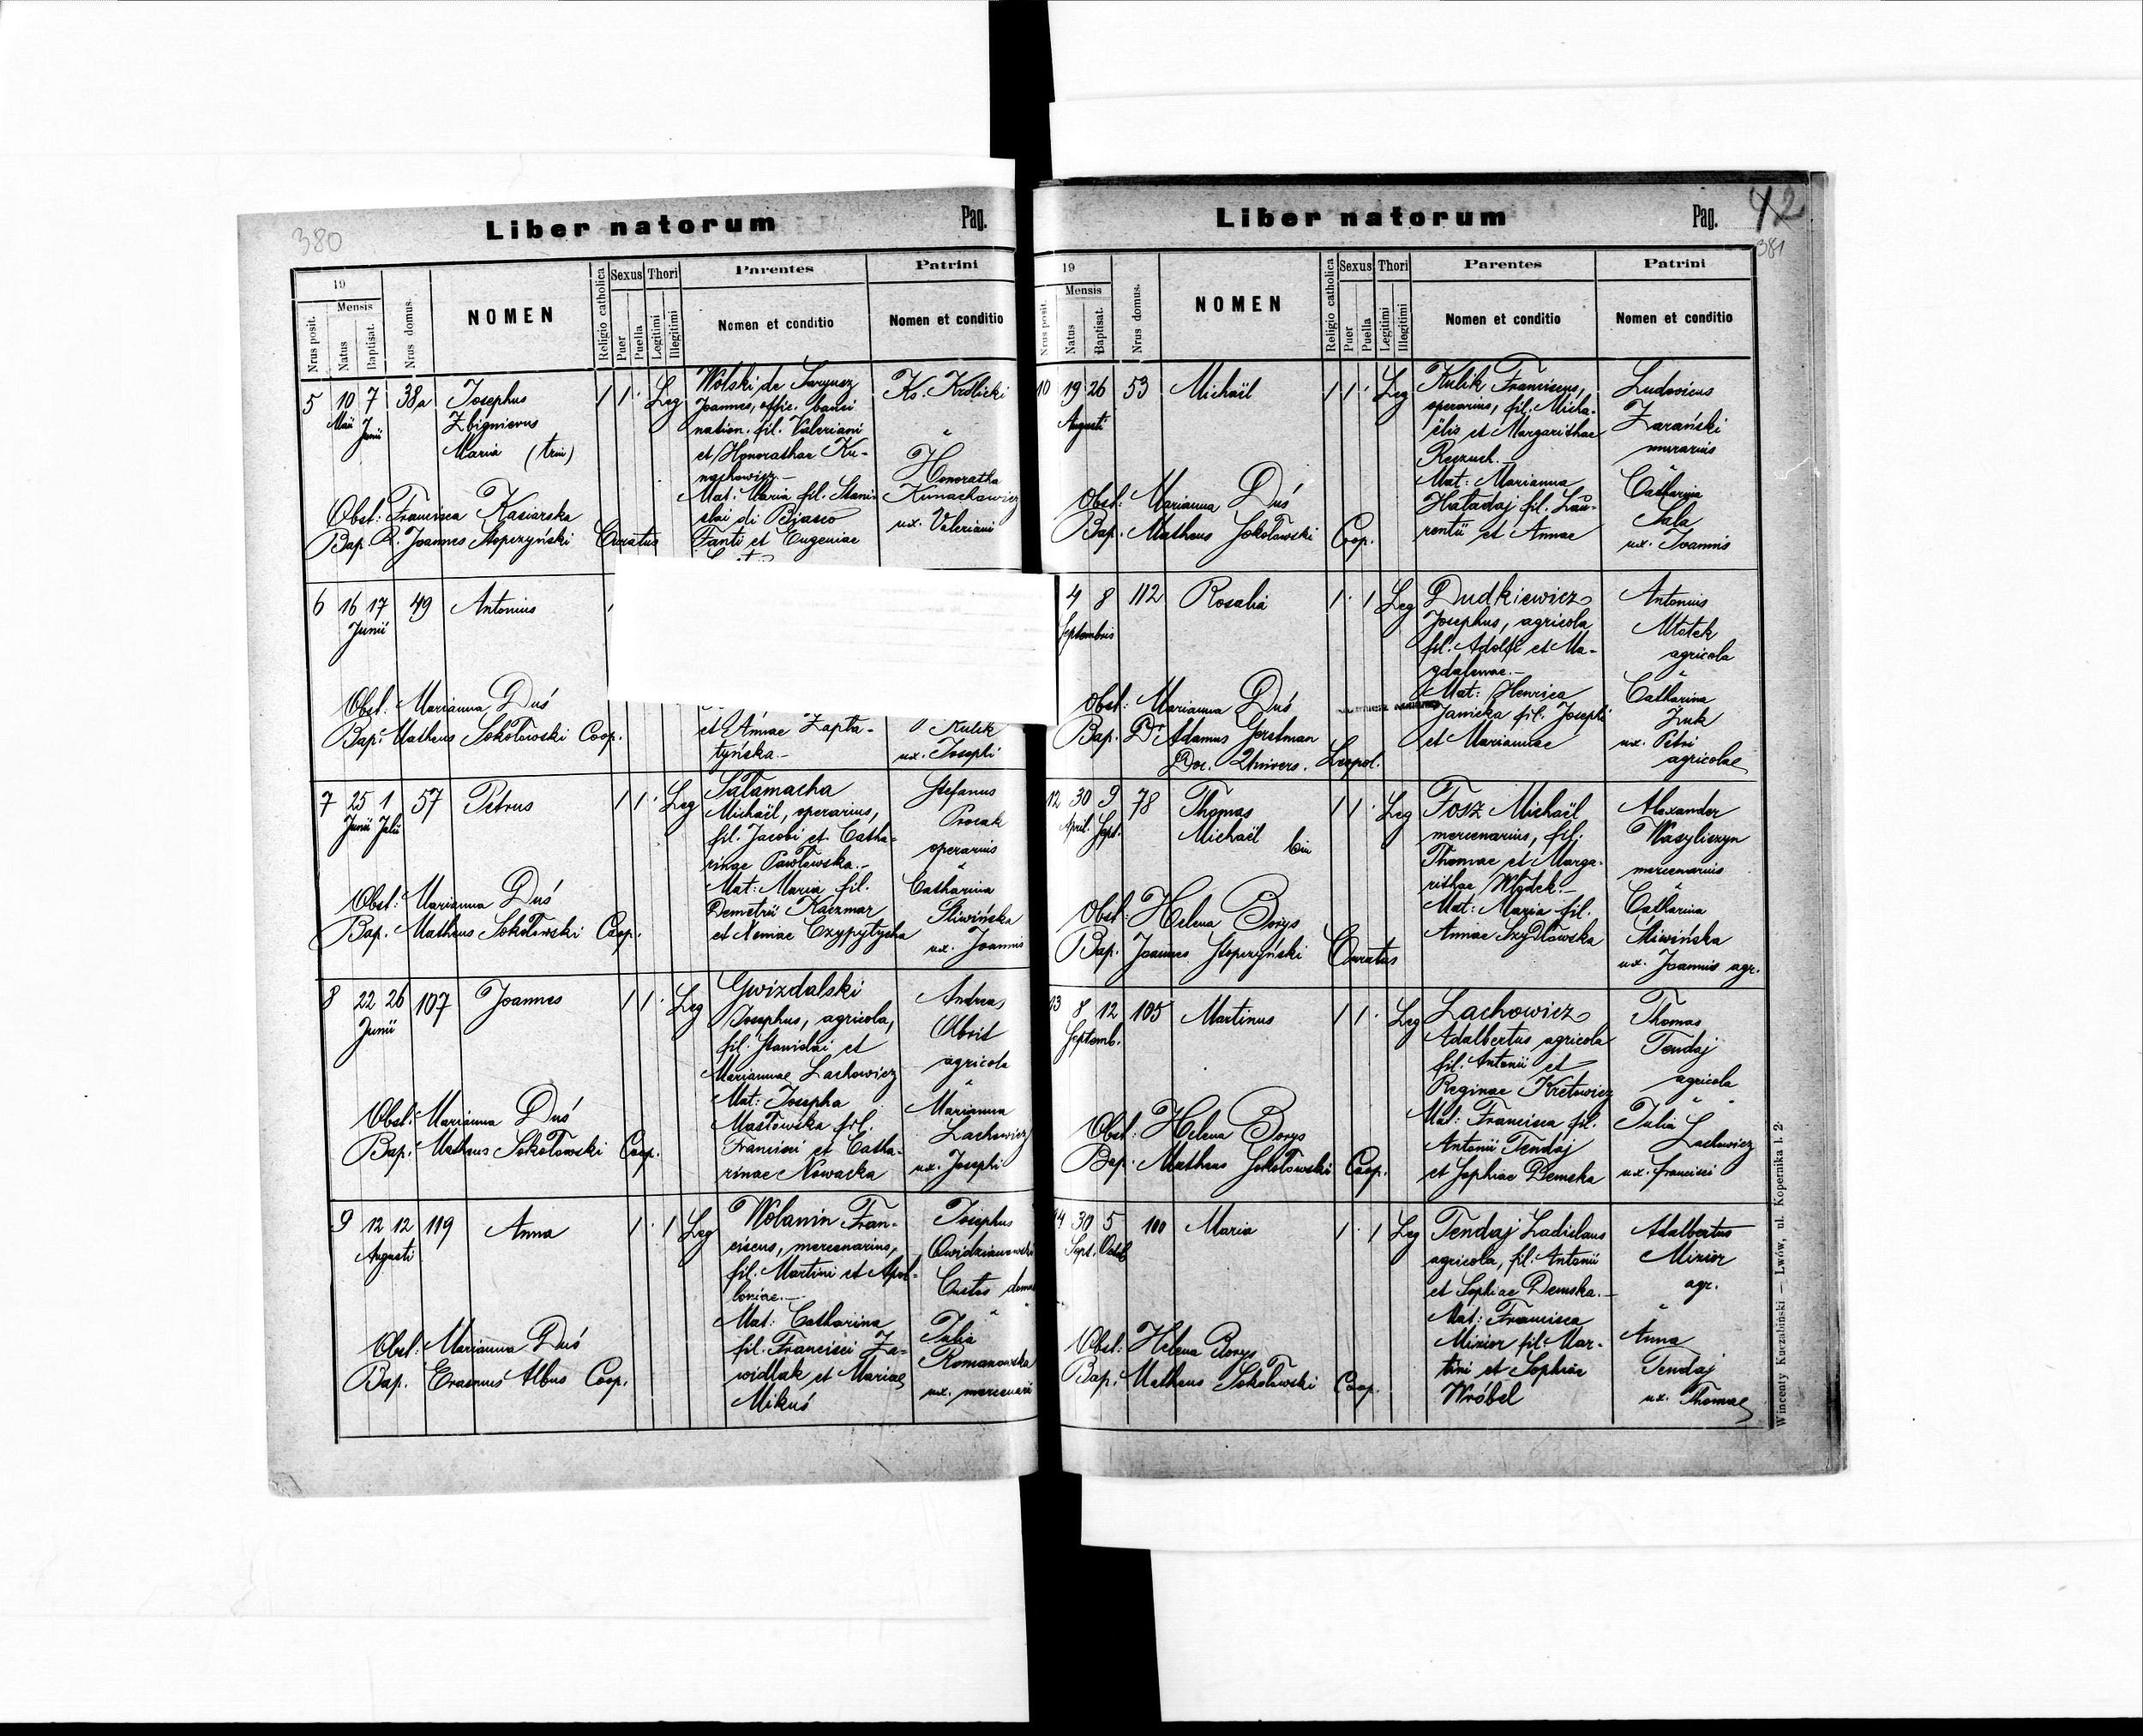 380
Liber natorum Pag.
19
Mensis
Nrus posit.
Natus
Baptisat.
Nrus domus.
NOMEN
Religio catholica
Sexus
Puer
Puella
Thori
Legitimi
Illegitimi
Parentes
Nomen et conditio
Patrini
Nomen et conditio
5 10 7 38a Josephus 1 1 · Leg Wolski de Saryusz Ks. Królicki
Maii Junii Zbignievus Joannes, offic. banci
nation. fil. Valeriani
Maria (trin) et Honorathae Ku- Honoratha
nachowicz.- Kunachowicz
Mat: Maria fil. Stanis- ux. Valeriani
Obst: Francisca Kasiarska slai di Bjasco
Bap. R. Joannes Stopczyński Curatus Fanti et Eugeniae
6 16 17 49 Antonius
Junii
Obst: Marianna Duś
Bap: Matheus Sokołowski Coop. et Annae Zapła- Kulik
tyńska.- ux. Josephi
7 25 1 57 Petrus 1 1 · Leg Sałamacha Stefanus
Junii Julii Michaël, operarius, Procak
fil. Jacobi et Catha- operarius
rinae Pawłowska.-
Obst: Marianna Duś Mat: Maria fil. Catharina
Demetrii Kaczmar Śliwińska
Bap. Matheus Sokołowski Coop. et Neniae Czypytycha ux. Joannis
8 22 26 107 Joannes 1 1 · Leg Gwizdalski Andreas
Junii Josephus, agricola, Olbrit
fil. Stanislai et agricola
Mariannae Lachowicz
Mat: Josepha Marianna
Obst: Marianna Duś Masłowska fil. Lachowicz
Bap: Matheus Sokołowski Coop. Francisci et Catha- ux. Josephi
rinae Nowacka
9 12 12 119 Anna 1 · 1 Leg Wolanin Fran- Josephus
Augusti ciscus, mercenarius,
fil. Martini et Apol- Custos
loniae.-
Mat: Catharina Julia
Obst: Marianna Duś fil. Francisci Za- Romanowska
Bap. Erasmus Albus Coop. widlak et Mariae ux. mercenarii
Mikuś
Liber natorum Pag. 42
381
19
Mensis
Nrus posit.
Natus
Baptisat.
Nrus domus.
NOMEN
Religio catholica
Sexus
Puer
Puella
Thori
Legitimi
Illegitimi
Parentes
Nomen et conditio
Patrini
Nomen et conditio
10 19 26 53 Michaël 1 1 · Leg Kulik Franciscus, Ludovicus
Augusti operarius, fil. Micha- Zarański
ëlis et Margarithae murarius
Reczuch.-
Mat: Marianna Catharina
Obst: Marianna Duś Haładaj fil. Lau- Sala
Bap. Matheus Sokołowski Coop. rentii et Annae ux. Joannis
4 8 112 Rosalia 1 · 1 Leg Dudkiewicz Antonius
Septembris Josephus, agricola Młotek
fil. Adolfi et Ma- agricola
gdalenae.-
Obst: Marianna Duś Mat: Henrica Catharina
Janicka fil. Josephi Żuk
Bap. Dr Adamus Gerstman et Mariannae ux. Petri
Doc. Univers. Leopol. agricolae
12 30 9 78 Thomas 1 1 · Leg Fosz Michaël Alexander
April. Sept. Michaël bin mercenarius, fil. Wasyliczyn
Thomae et Marga- mercenarius
rithae Włodek.-
Obst: Helena Borys Mat: Maria fil. Catharina
Annae Szydłowska Śliwińska
Bap. Joannes Stopczyński Curatus ux. Joannis agr.
13 8 12 105 Martinus 1 1 · Leg Lachowicz Thomas
Septemb. Adalbertus agricola Tendaj
fil. Antonii et agricola
Reginae Kretowicz
Obst: Helena Borys Mat: Francisca fil. Julia
Antonii Tendaj Lachowicz
Bap. Matheus Sokołowski Coop. et Sophiae Demska ux. Francisci
14 30 5 100 Maria 1 · 1 Leg Tendaj Ladislaus Adalbertus
Sept. Octob agricola, fil. Antonii Mizior
et Sophiae Demska.- agr.
Mat: Francisca
Obst: Helena Borys Mizior fil. Mar- Anna
Bap. Matheus Sokołowski Coop. tini et Sophiae Tendaj
Wróbel ux. Thomae
Wincenty Kuczabiński — Lwów, ul. Kopernika l. 2.